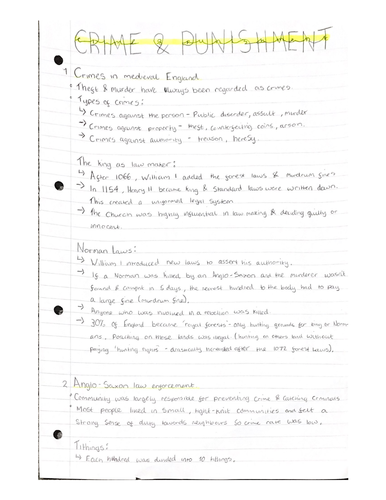 CRIME & PUNISHMENT
1 Crimes in medieval England
• Theft & murder have always been regarded as crimes
• Types of crimes:
↳ Crimes against the person - Public disorder, assult, murder
↳ Crimes against property - theft, counterfeiting coins, arson.
↳ Crimes against authority - treason, heresy.
The king as law maker:
↳ After 1066, William I added the forest laws & murdrum fines
↳ In 1154, Henry II became King & standard laws were written down.
This created a uniformed legal system
↳ The Church was highly influential in law making & deciding guilty or
innocent.
Norman laws:
↳ William I introduced new laws to assert his authority.
↳ If a Norman was killed by an Anglo-Saxon and the murderer wasn't
found & in 5 days, the hundred to the body had to pay
a large fine (murdrum fine).
↳ Anyone who was involved in a rebellion was killed
↳ 30% of England became 'royal forests' - only hunting grounds for king or Norm
ans. Poaching on these lands was illegal (hunting on others land without
paying 'hunting rights' - dramatically increased after the 1072 forest laws).
2 Anglo-Saxon law enforcement
• Community was largely responsible for preventing crime & catching criminals
• Most people lived in small, tight-knit communities and felt a
strong sense of duty towards neighbours so crime rate was low.
Tithings:
↳ Each hundred was divided into 10 tithings.